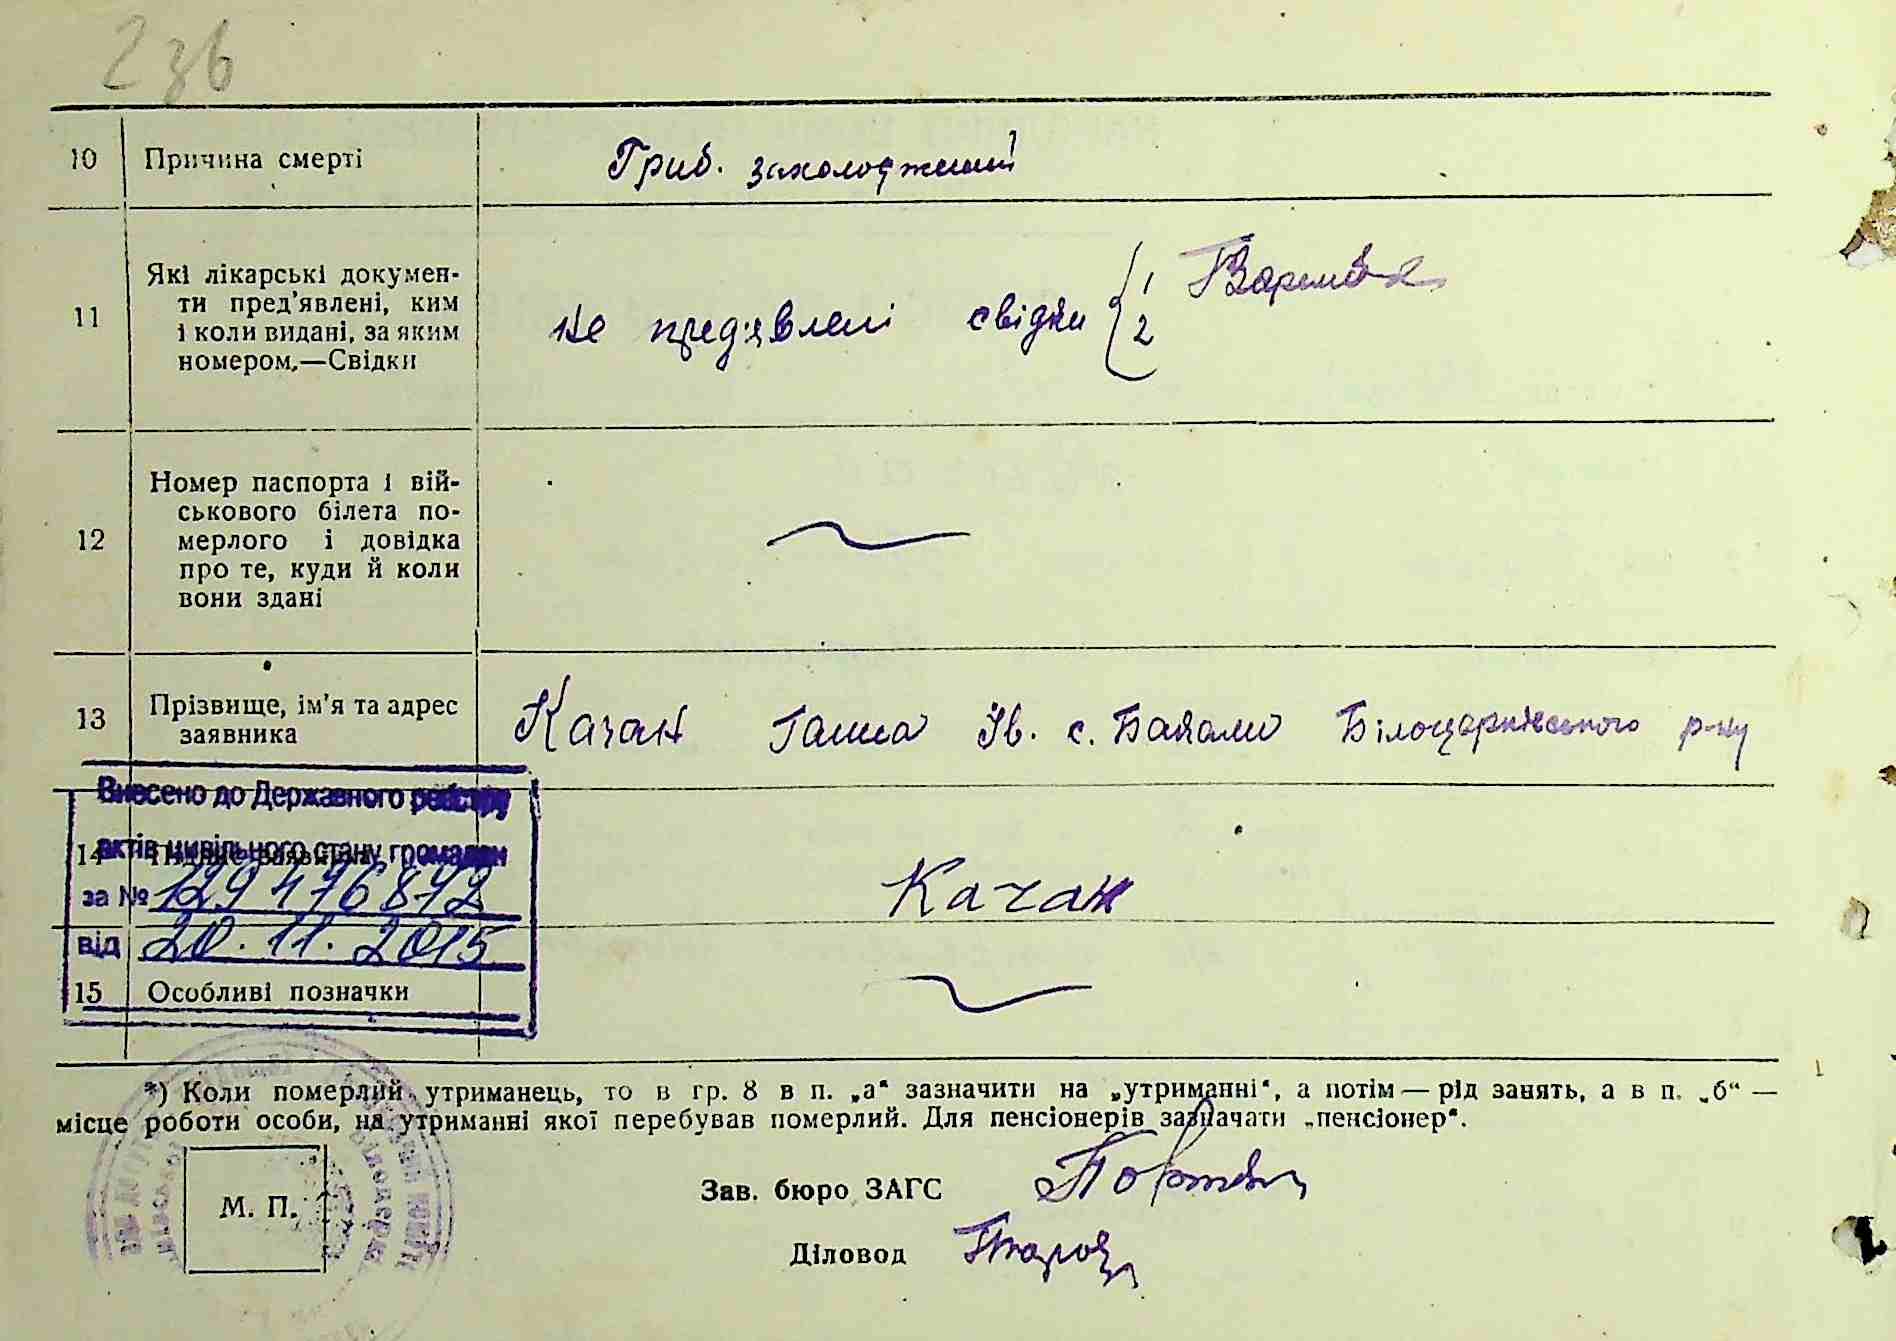 236
10 Причина смерті Гриб. захолоджений
11 Які лікарські докумен-
ти пред'явлені, ким
і коли видані, за яким
номером.—Свідки
не пред'явлені свідки { 1
2
12 Номер паспорта і вій-
ськового білета по-
мерлого і довідка
про те, куди й коли
вони здані
13 Прізвище, ім'я та адрес
заявника
Качан Ганна Ів. с. Бакали Білоцерківського р-ну
Внесено до Державного реєстру
актів цивільного стану громадян
за № 129476872
від 20.11.2015
14 Підпис заявника Качан
15 Особливі позначки
*) Коли померлий утриманець, то в гр. 8 в п. „а“ зазначити на „утриманні“, а потім — рід занять, а в п. „б“ —
місце роботи особи, на утриманні якої перебував померлий. Для пенсіонерів зазначати „пенсіонер“.
М. П.
Зав. бюро ЗАГС
Діловод